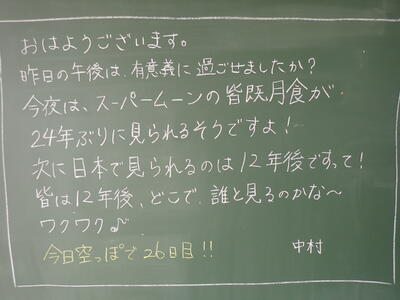 おはようございます。
昨日の午後は、有意義に過ごせましたか？
今夜は、スーパームーンの皆既月食が
24年ぶりに見られるそうですよ！
次に日本で見られるのは12年後ですって！
皆は12年後、どこで、誰と見るのかな〜
ワクワク♪
今日空っぽで26日目!!
中村